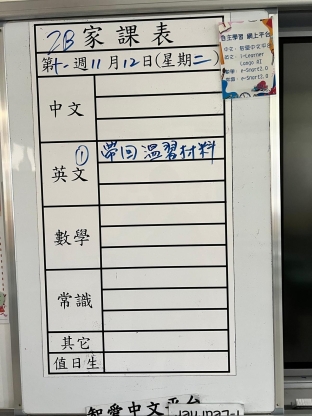 2B家課表
第十一週11月12日(星期二)
中文
英文 ① 帶回溫習材料
數學
常識
其它
值日生
自主學習 網上平台
中文：智愛中文平台
英文：i-Learner
Longo OI
智愛中文平台
i-Learner